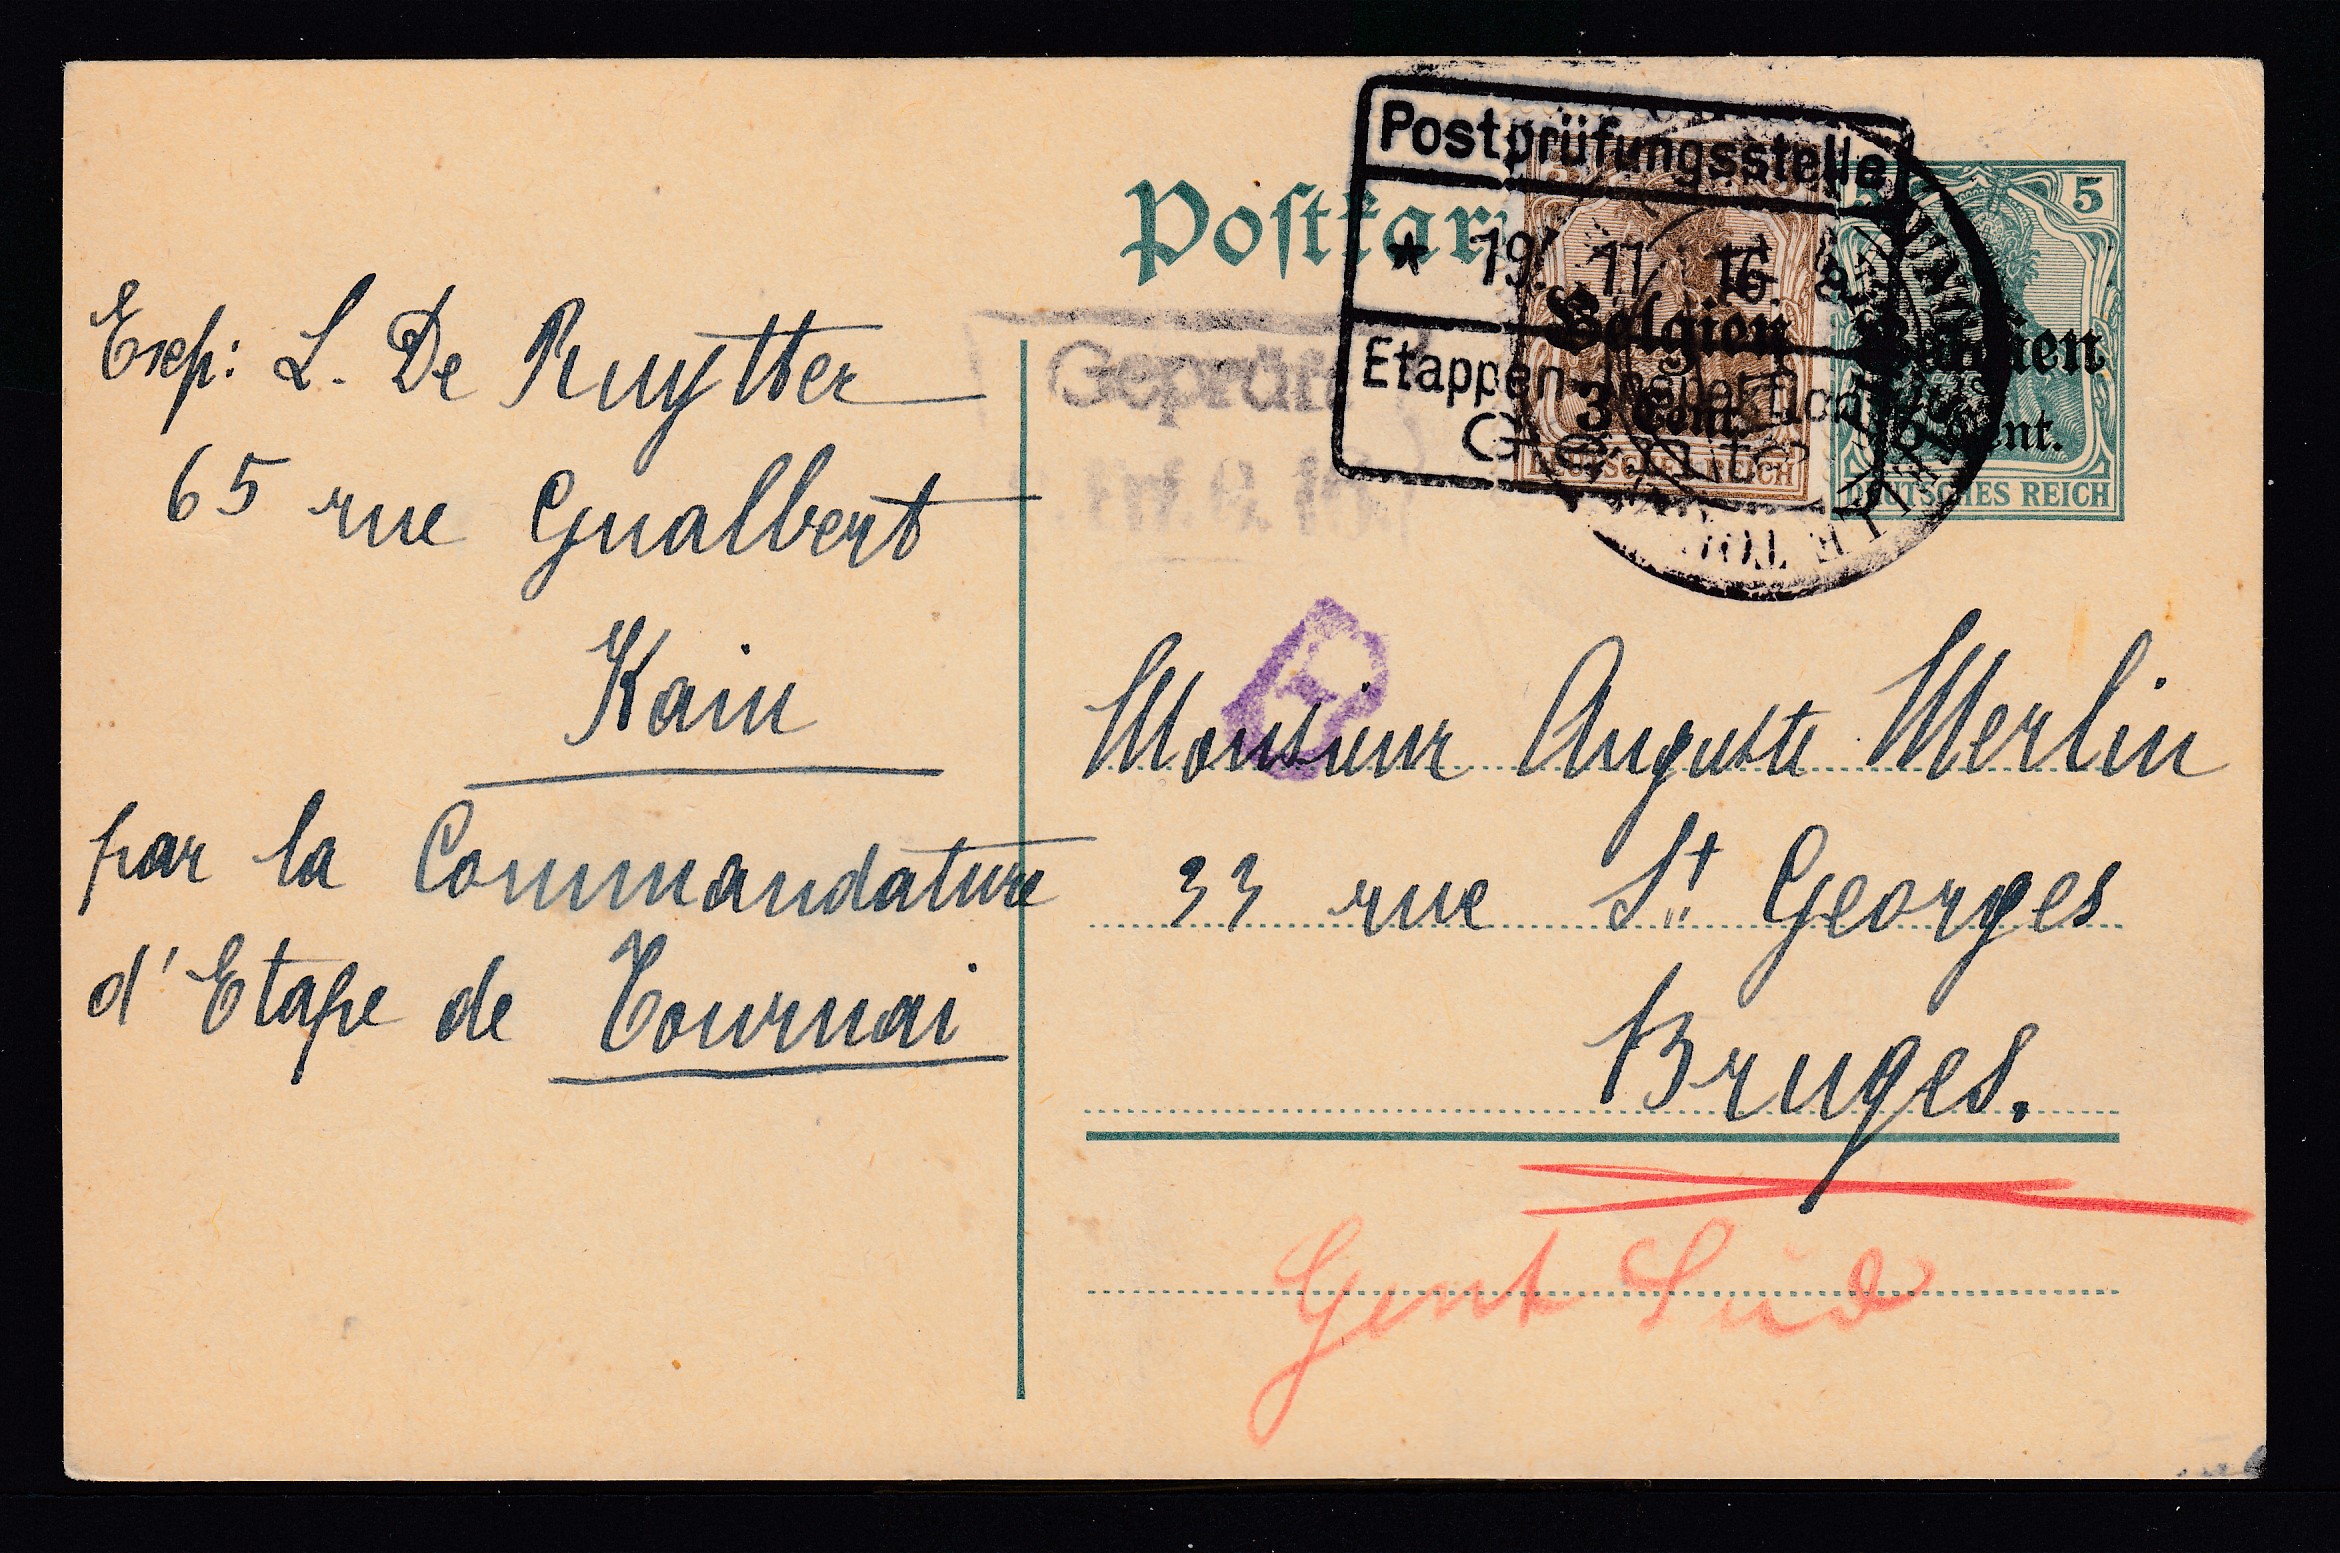 Postprüfungsstelle
★ 19. 11. 16.
Etappen-Inspektion
Gent
Postkar
5
Belgien
3 Cent.
DEUTSCHES REICH
Belgien
5 Cent.
DEUTSCHES REICH
Geprüft
Exp: L. De Ruytter
65 rue Gualbert
Kain
par la Commandature
d'Etape de Tournai
Monsieur Auguste Merlin
33 rue St Georges
Bruges.
Gent Süd